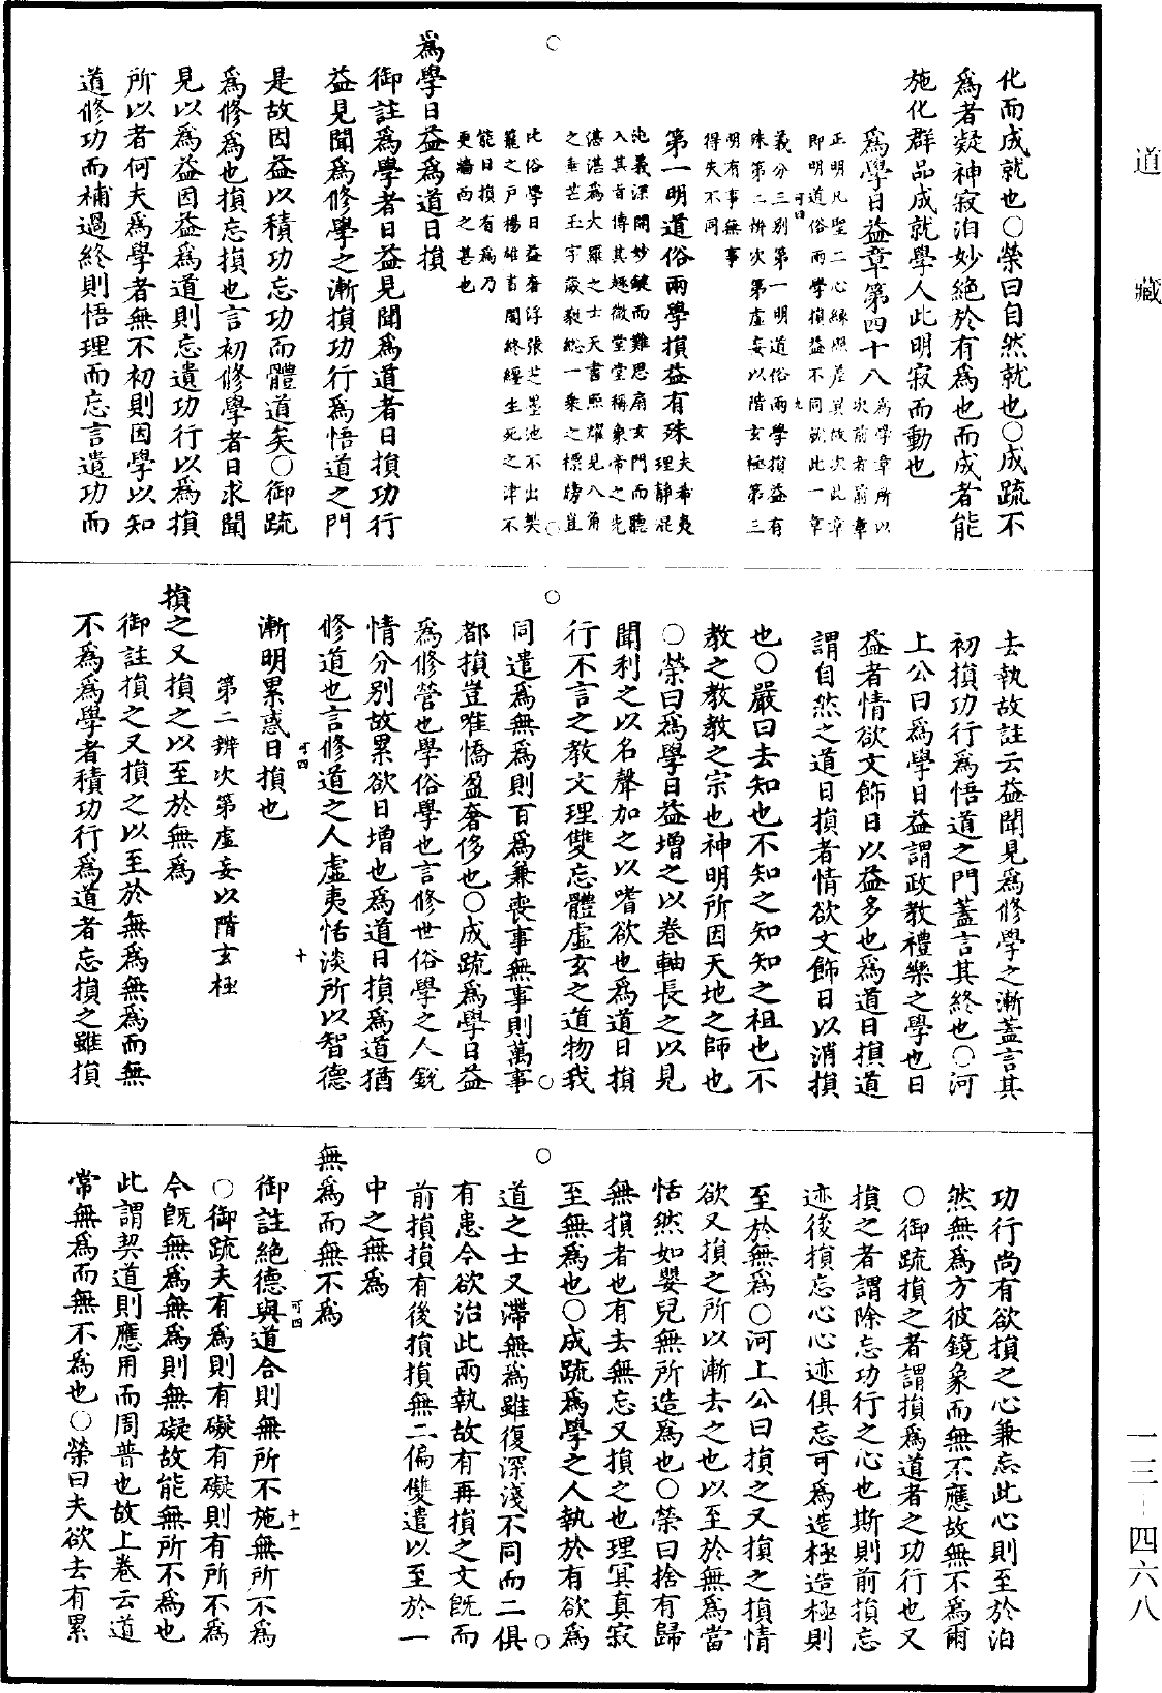 化而成就也○榮曰自然就也○成疏不
爲者凝神寂泊妙絶於有爲也而成者能
施化群品成就學人此明寂而動也
爲學日益章第四十八爲學章所以次前者前章
正明凡聖二心緣照差異故次此章
即明道俗兩學損益不同就此一章
可曰 九
義分三別第一明道俗兩學損益有
殊第二辨次第虛妄以階玄極第三
明有事無事
得失不同
第一明道俗兩學損益有殊夫希夷理靜混
沌義深開妙鍵而難思扇玄門而聽
入其旨傳其極微堂堂稱象帝之先
湛湛爲大羅之士天書熙耀見八角
之垂芒玉字葳蕤総一乗之標牓豈
比俗學日益奢浮張芝墨池不出製
籠之戶楊雄書閣終經生死之津不
能日損有爲乃
更牆面之甚也
爲學日益爲道日損
御註爲學者日益見聞爲道者日損功行
益見聞爲修學之漸損功行爲悟道之門
是故因益以積功忘功而體道矣○御疏
爲修爲也損忘損也言初修學者日求聞
見以爲益因益爲道則忘遺功行以爲損
所以者何夫爲學者無不初則因學以知
道修功而補過終則悟理而忘言遺功而
去執故註云益聞見爲修學之漸蓋言其
初損功行爲悟道之門蓋言其終也○河
上公曰爲學日益謂政教禮樂之學也日
益者情欲文飾日以益多也爲道日損道
謂自然之道日損者情欲文飾日以消損
也○嚴曰去知也不知之知知之祖也不
教之教教之宗也神明所因天地之師也
○榮曰爲學日益增之以卷軸長之以見
聞利之以名聲加之以嗜欲也爲道日損
行不言之教文理雙忘體虛玄之道物我
同遣爲無爲則百爲兼喪事無事則萬事
都損豈唯憍盈奢侈也○成疏爲學日益
爲修營也學俗學也言修世俗學之人銳
情分別故累欲日增也爲道日損爲道猶
修道也言修道之人虛夷恬淡所以智德
可四 十
漸明累惑日損也
第二辨次第虛妄以階玄極
損之又損之以至於無爲
御註損之又損之以至於無爲無爲而無
不爲爲學者積功行爲道者忘損之雖損
功行尚有欲損之心兼忘此心則至於泊
然無爲方彼鏡象而無不應故無不爲爾
○御疏損之者謂損爲道者之功行也又
損之者謂除忘功行之心也斯則前損忘
迹後損忘心心迹俱忘可爲造極造極則
至於無爲○河上公曰損之又損之損情
欲又損之所以漸去之也以至於無爲當
恬然如嬰兒無所造爲也○榮曰捨有歸
無損者也有去無忘又損之也理冥真寂
至無爲也○成疏爲學之人執於有欲爲
道之士又滯無爲雖復深淺不同而二俱
有患今欲治此兩執故有再損之文旣而
前損損有後損損無二偏雙遣以至於一
中之無爲
無爲而無不爲
御註絶德與道合則無所不施無所不爲
可四 十一
○御疏夫有爲則有礙有礙則有所不爲
今旣無爲無爲則無礙故能無所不爲也
此謂契道則應用而周普也故上卷云道
常無爲而無不爲也○榮曰夫欲去有累
道藏
一三－四六八